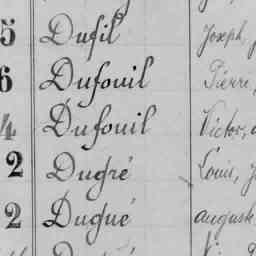 5 Dufil Joseph,
6 Dufouil Pierre,
4 Dufouil Victor,
2 Dugré Louis,
2 Dugué auguste